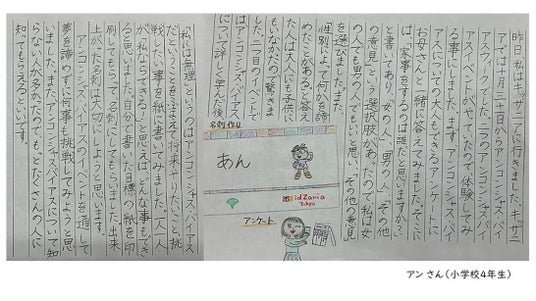 昨日、私はキッザニアに行きました。キッザニ
アでは十月二十日からアンコンシャス・バイ
アスウィークでした。二つのアンコンシャス・バイ
アス・イベントがやっていたので体験してみ
る事にしました。まず、アンコンシャス・バイ
アスについての大人もできるアンケートに
お母さんと一緒に答えました。そこに
は、「家事をするのは誰だと思いますか?」
と書いてあり、「女の人」、「男の人」、「その他
の意見」という選択肢があったので私は女
の人でも男の人でもいいと思い、「その他の意見」
を選びました。また、
「性別によって何かを諦
めたことがある」と答え
た人は大人にも子供に
もいなかたので驚きま
した。二つ目のイベントで
アンコンシャス・バイアス
について詳しく学んだ後
名刺作り
あん
KidZania
Tokyo
アンケート
「私には無理」というのはアンコンシャス・バイアス
だということをふまえて将来やりたいこと、挑
戦したい事を紙に書いてみました。一人一人
が、「私ならできる!」と思えば、どんな事もでき
ると思いました。自分で書いた目標の紙を印
刷してもらって、名刺にしてもらいました。出来
上がった名刺は大切にしようと思います。
アンコンシャス・バイアスのイベントを通して
夢を諦めずに何事も挑戦してみようと思
いました。また、アンコンシャス・バイアスについて知
らない人が多かたので、もっとたくさんの人に
知ってもらえるといいです。
アンさん(小学校4年生)